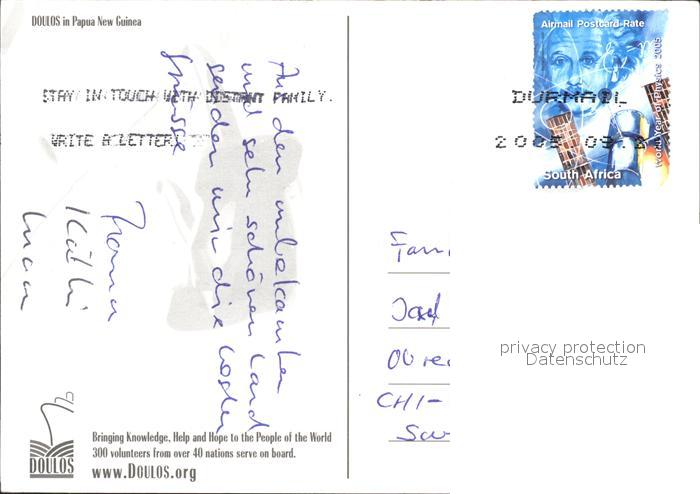 DOULOS in Papua New Guinea
Airmail Postcard Rate
World Year of Physics 2005
South Africa
STAY IN TOUCH WITH DISTANT FAMILY.
WRITE A LETTER
DURMAIL
2005.09.
Aus dem unbekannten
und sehr schönen Land
senden wir die besten
Grüsse
Käthi
Fam
Josef
CHI-
privacy protection
Datenschutz
DOULOS
Bringing Knowledge, Help and Hope to the People of the World
300 volunteers from over 40 nations serve on board.
www.DOULOS.org